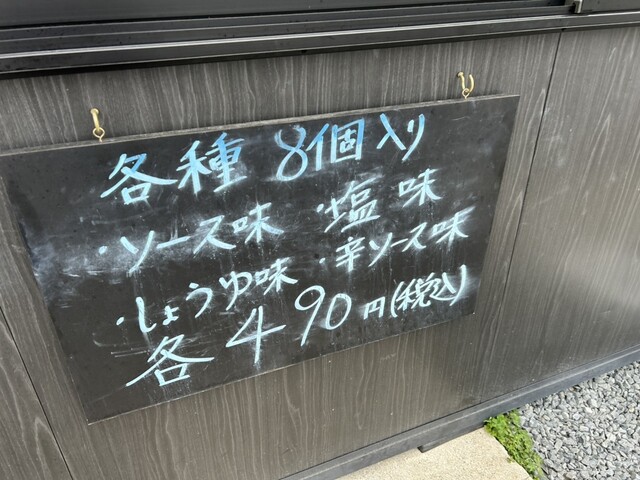 各種 8個入り
・ソース味 ・塩味
・しょうゆ味 ・辛ソース味
各 490円(税込)